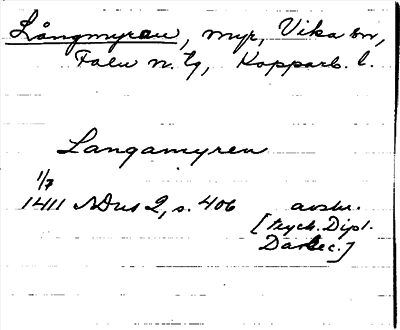 Långmyran, myr, Vika sn,
Falu n. tg, Kopparb. l.
Langamyren
1/7
1411 NDns 2, s. 406 avskr.
[tryck. Dipl.
Dalec.]